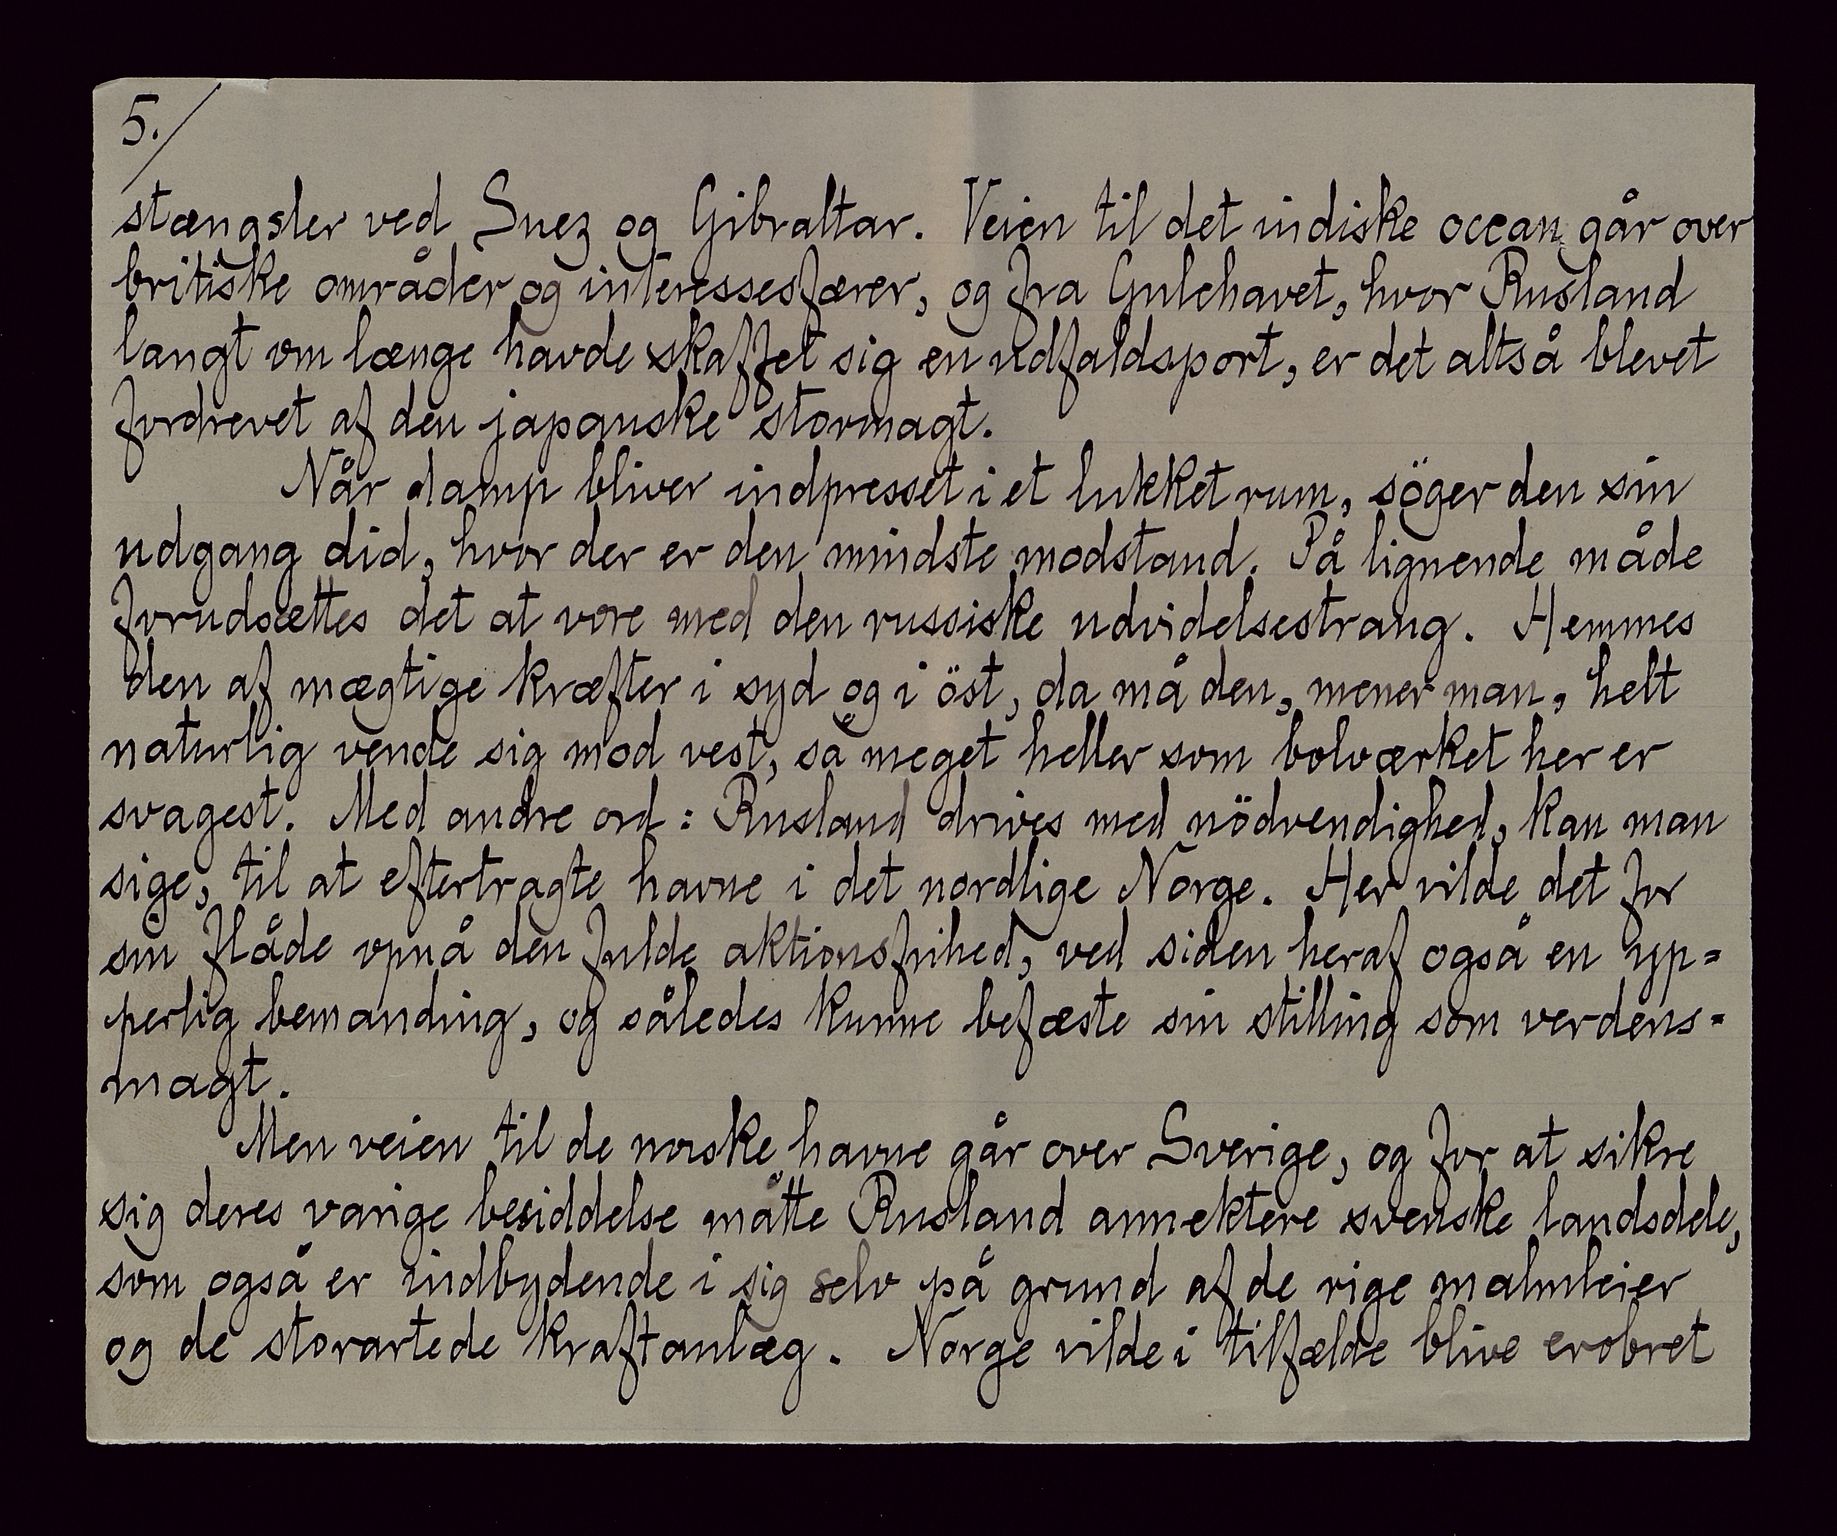 5./
stængsler ved Suez og Gibraltar. Veien til det indiske ocean går over
britiske områder og interessesfærer, og fra Gulehavet, hvor Rusland
langt om længe havde skaffet sig en udfaldsport, er det altså blevet
fordrevet af den japanske stormagt.
Når damp bliver indpresset i et lukket rum, söger den sin
udgang did, hvor der er den mindste modstand. På lignende måde
forudsættes det at være med den russiske udvidelsestrang. Hemmes
den af mægtige kræfter i syd og i öst, da må den, mener man, helt
naturlig vende sig mod vest, så meget heller som bolværket her er
svagest. Med andre ord: Rusland drives med nödvendighed, kan man
sige, til at eftertragte havne i det nordlige Norge. Her vilde det for
sin flåde opnå den fulde aktionsfrihed, ved siden heraf også en yp=
perlig bemanding, og således kunne befæste sin stilling som verdens=
magt.
Men veien til de norske havne går over Sverige, og for at sikre
sig deres varige besiddelse måtte Rusland annektere svenske landsdele,
som også er indbydende i sig selv på grund af de rige malmleier
og de storartede kraftanlæg. Norge vilde i tilfælde blive erobret